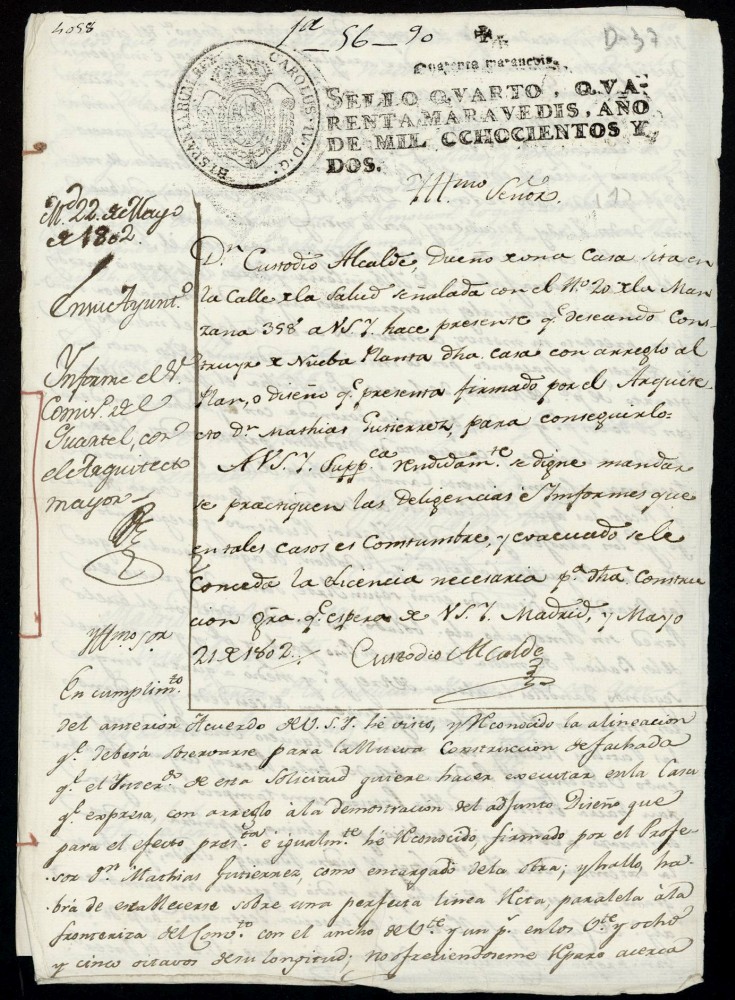 4058
1ª - 56 - 90
D-37
Quarenta maravedis.
HISPANIARUM REX CAROLUS IV D. G.
SELLO QVARTO, QVA-
RENTA MARAVEDIS, AÑO
DE MIL OCHOCIENTOS Y
DOS.
Yllmo Señor
Md 22 de Mayo
de 1802.
En su Ayuntº
Ynforme el Sr
Comisº del
Quartel, con
el Arquitecto
mayor
Dn Custodio Alcalde, dueño de una Casa sita en
la Calle de la Salud señalada con el Nº 20 de la Man
zana 358 a VS.Y. hace presente qe deseando Cons-
truyr de Nueba Planta dha casa con arreglo al
Plan, o diseño qe presenta firmado por el Arquite-
cto dn Mathias Gutierrez, para conseguirlo=
A VS.Y. Suppca rendidamte se digne mandar
se practiquen las deligencias e Informes que
en tales casos es Comstumbre, y evacuado se le
Conceda la Licencia necesaria pa dha Constru
cion Gra qe espera de VS.Y. Madrid, y Mayo
21 de 1802
Custodio Alcalde
Yllmo Sor
En cumplimto
del anterior Acuerdo de V.S.Y. he visto, y Reconocido la alineacion
qe deberá observarse para la Nueva Construccion de fachada
qe el Interdo de esta Solicitud quiere hacer executar en la Casa
qe expresa, con arreglo à la demostracion del adjunto Diseño que
para el efecto presta è igualmte he Reconocido, firmado por el Profe-
sor Dn Mathias Gutierrez, como encargado de la obra; y hallo, ha
brá de establecerse sobre una perfecta linea Recta, paralela à la
fronteriza del Convto con el ancho de Vte y un p. en los Vte y ocho
y cinco octavos de su longitud; no ofreciendoseme Reparo acerca